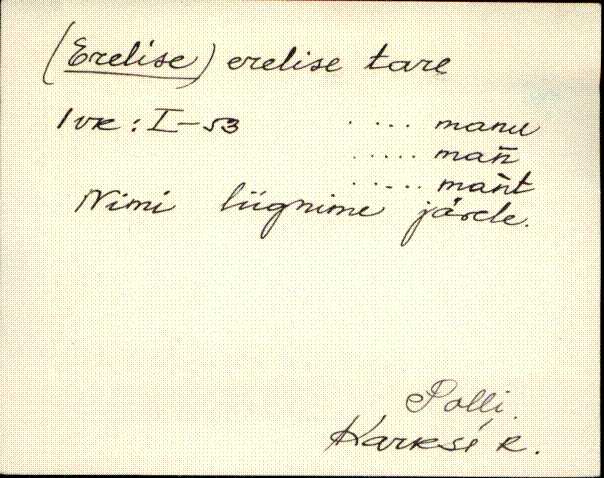 (Erelise) erelise tare
1 vk: I-53 .... manu
..... mań
..... mańt
Nimi liignime järele.
Polli.
Karksi k.